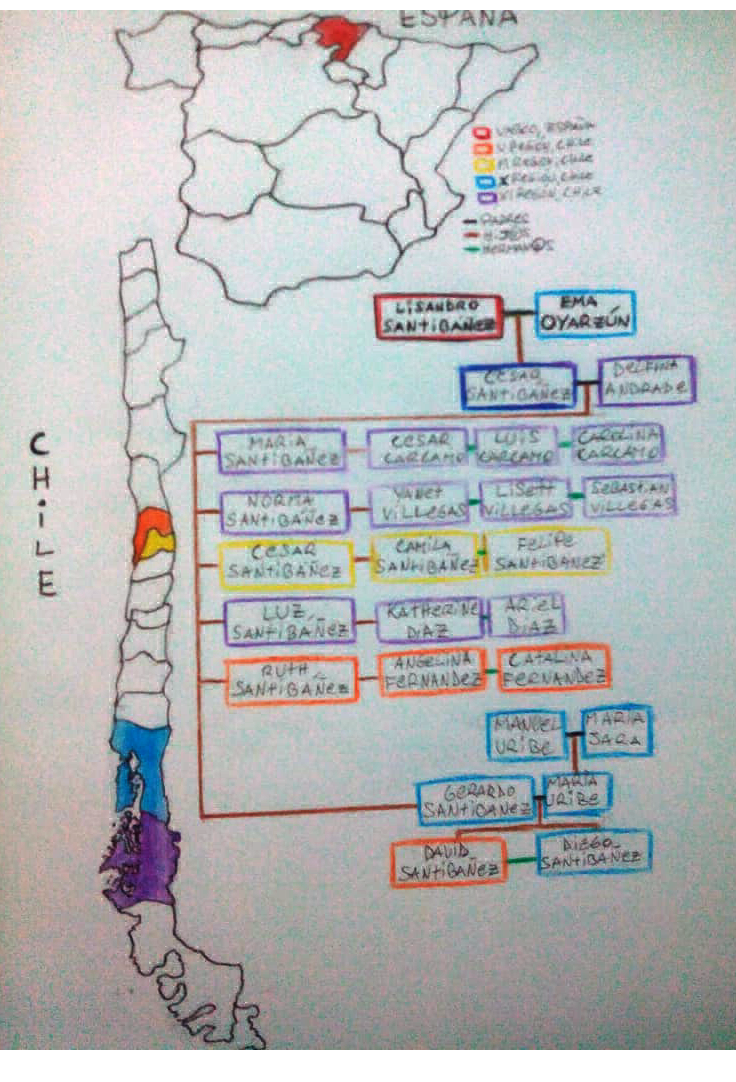 ESPAÑA
VASCO, ESPAÑA
V REGION, CHILE
M REGION, CHILE
X REGIÓN, CHILE
XI REGIÓN, CHILE
PADRES
HIJOS
HERMAN@S
CHiLE
LiSANDRO
SANTiBÁÑEZ
EMA
OYARZÚN
CESAR
SANTiBAÑEZ
DELFINA
ANDRADE
MARÍA
SANTIBAÑEZ
CESAR
CARCAMO
LUIS
CARCAMO
CAROLINA
CARCAMO
NORMA
SANTIBAÑEZ
YANET
ViLLEGAS
LISETT
ViLLEGAS
SEBASTIAN
VILLEGAS
CESAR
SANTIBAÑEZ
CAMILA
SANTIBAÑEZ
FELIPE
SANTIBAÑEZ
LUZ
SANTIBAÑEZ
KATHERINE
DIAZ
ARIEL
DIAZ
RUTH
SANTIBAÑEZ
ANGELINA
FERNANDEZ
CATALINA
FERNANDEZ
MANUEL
URIBE
MARIA
JARA
GERARDO
SANTIBAÑEZ
MARÍA
URIBE
DAVID
SANTIBAÑEZ
DIEGO
SANTIBAÑEZ